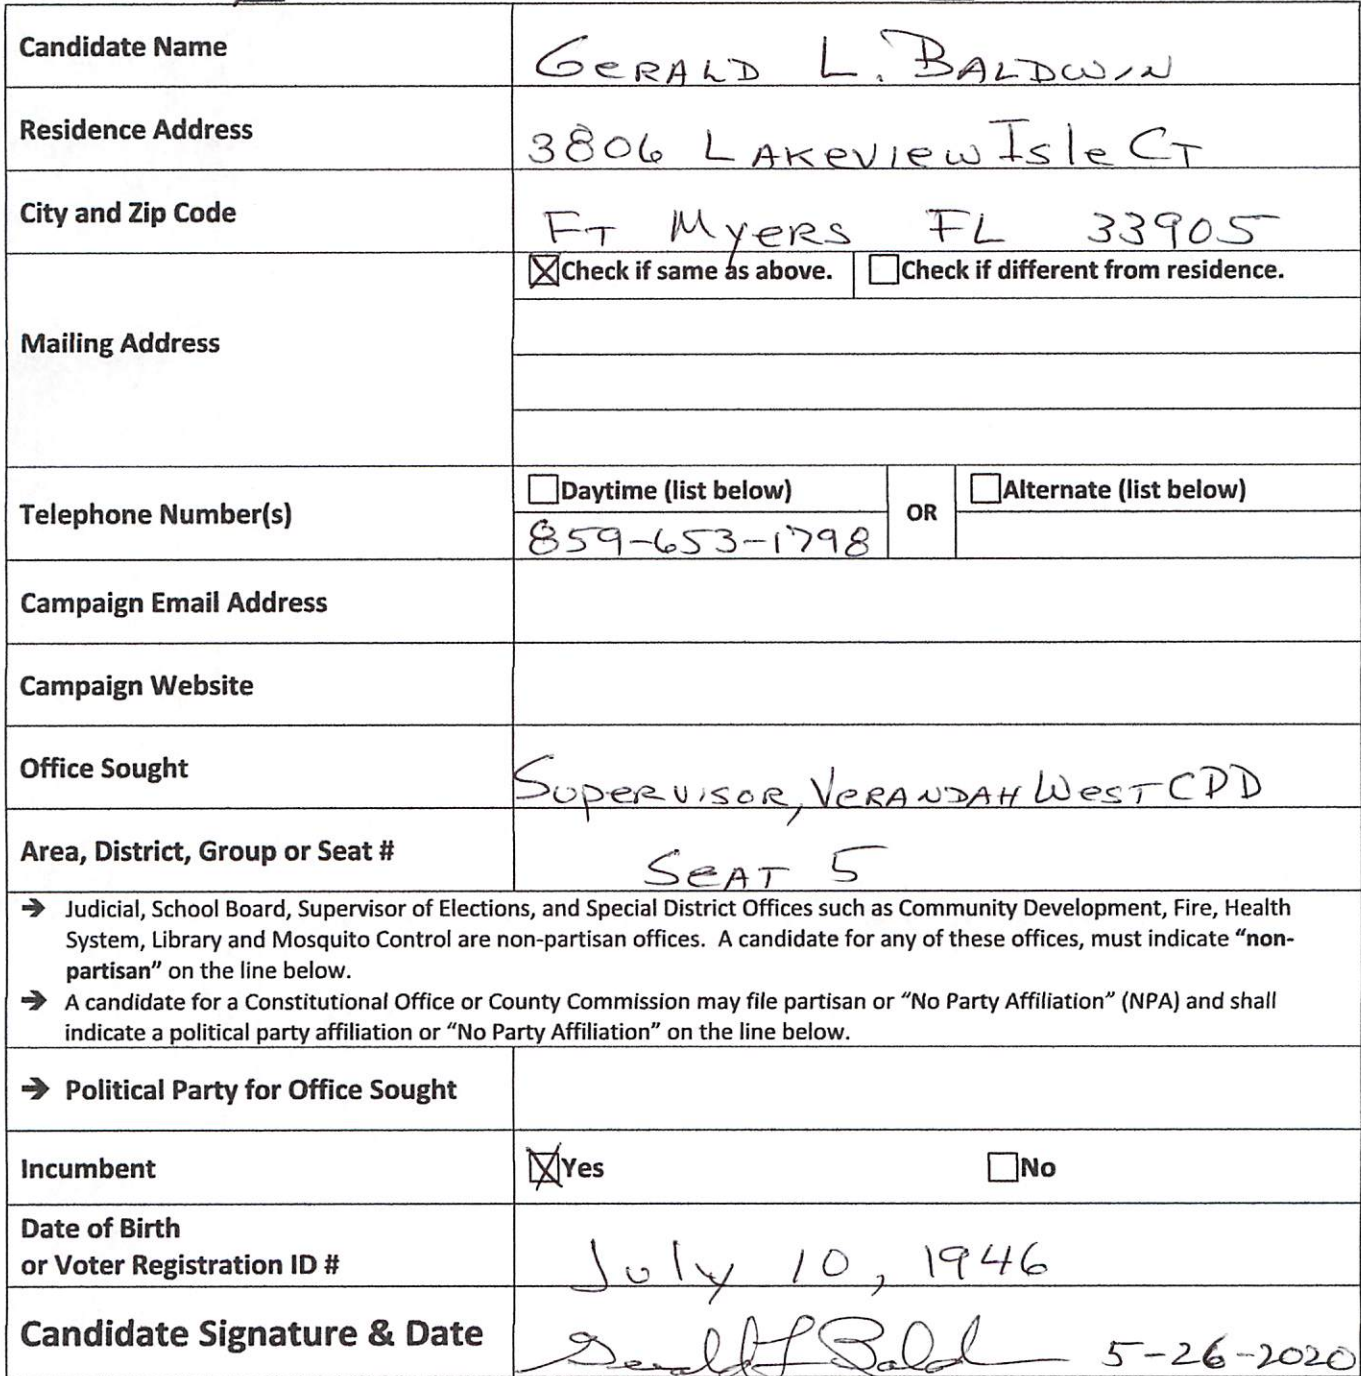 Candidate Name GERALD L. BALDWIN
Residence Address 3806 LAKEVIEW Isle CT
City and Zip Code FT MYERS FL 33905
☒Check if same as above. ☐Check if different from residence.
Mailing Address
☐Daytime (list below) ☐Alternate (list below)
Telephone Number(s) OR
859-653-1798
Campaign Email Address
Campaign Website
Office Sought SUPERVISOR, VERANDAH WEST CDD
Area, District, Group or Seat # SEAT 5
➔ Judicial, School Board, Supervisor of Elections, and Special District Offices such as Community Development, Fire, Health
System, Library and Mosquito Control are non-partisan offices. A candidate for any of these offices, must indicate "non-
partisan" on the line below.
➔ A candidate for a Constitutional Office or County Commission may file partisan or "No Party Affiliation" (NPA) and shall
indicate a political party affiliation or "No Party Affiliation" on the line below.
➔ Political Party for Office Sought
Incumbent ☒Yes ☐No
Date of Birth
or Voter Registration ID # July 10, 1946
Candidate Signature & Date Gerald L Baldwin 5-26-2020